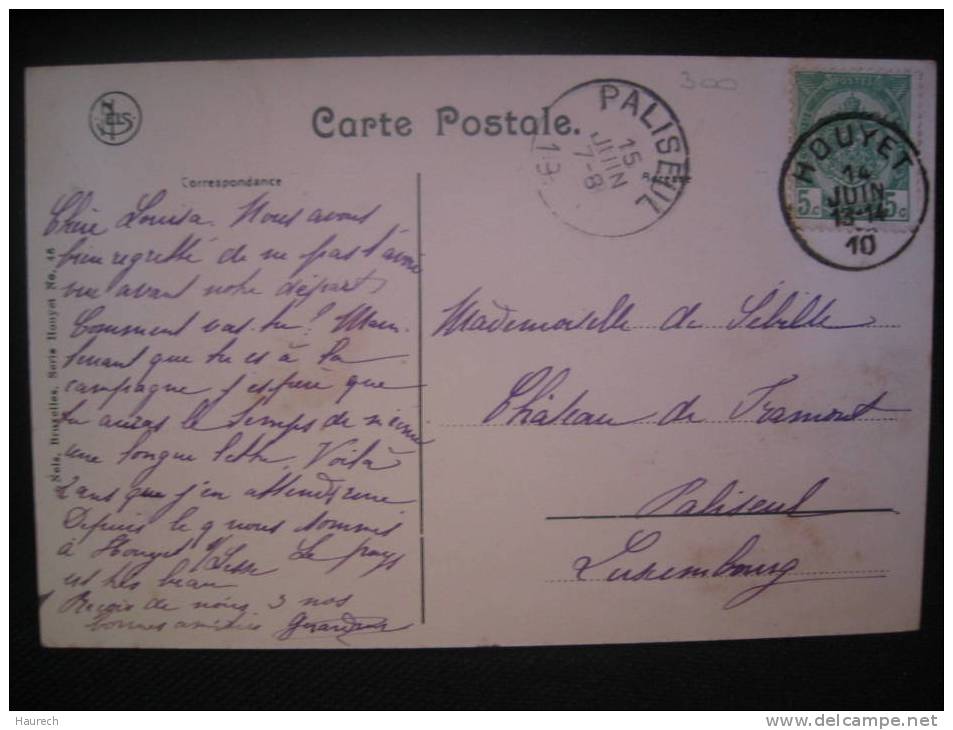 NELS
Carte Postale.
300
PALISEUL
15
JUIN
7-8
19
HOUYET
14
JUIN
13-14
10
5c 5c
Correspondance
Nels, Bruxelles, Serie Houyet No. 48
Chère Louisa. Nous avons
bien regretté de ne pas t'avoir
vue avant notre départ.
Comment vas-tu? Main-
tenant que tu es à la
campagne j'espère que
tu auras le temps de m'écrire
une longue lettre. Voilà
2 ans que j'en attends une
Depuis le 9 nous sommes
à Houyet s/Lesse Le pays
est très beau
Reçois de nous 3 nos
bonnes amitiés
Mademoiselle de Sébille
Château de Framont
Paliseul
Luxembourg
Haurech
www.delcampe.net